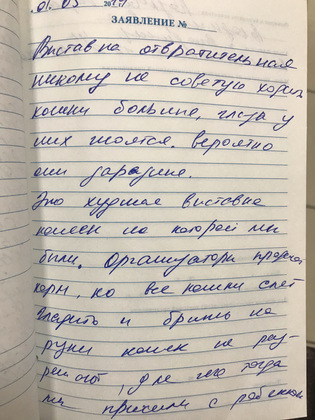 01 03 2019
ЗАЯВЛЕНИЕ №
Выставка отвратительная
никому не советую ходить
кошки больные, глаза у
них гноятся. вероятно
они заразные.
Это худшая выставка
кошек на которой мы
были. Организаторы продают
корм, но все кошки спят
гладить и брать на
руки кошек не раз-
решают, для чего тогда
мы пришли с ребенком